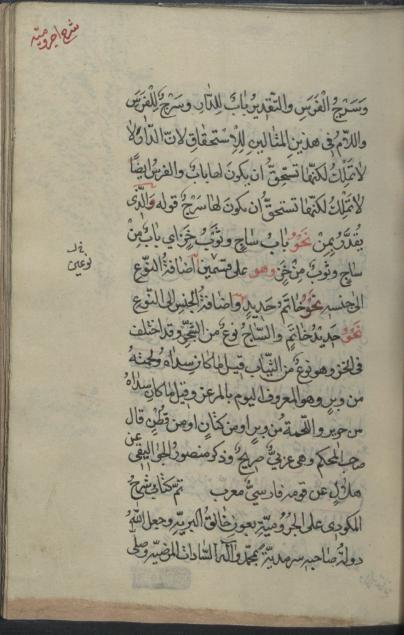 شرح اجروميه
وَسَرْجُ الْفَرَسِ والتَّقدِيرُ بَابٌ لِلدَّارِ وَسَرْجٌ لِلْفَرَسِ
واللاّم فى هذين المثالين لِلْاِسْتِحقاقِ لانّ الدّارَ لا
لا تملِكُ لكنّها تستحِقُّ ان يكونَ لها بابٌ والفرسُ ايضًا
لا تملكُ لكنّها تستحقُّ ان يكون لها سرجٌ قوله وَالَّذى
يُقدَّرُ بِمِنْ نَحْوُ بابُ ساجٍ وثَوْبُ خَزٍّ اى بابٌ مِنْ
ساجٍ وثوبٌ مِنْ خَزٍّ وهو على قسمين اضافةُ النّوعِ
نوعين
الى جنسهِ نحْوُ خاتمُ حديدٍ واضافةُ الجنس الى النّوع
نَحْوُ حديدُ خاتمٍ والسّاج نوعٌ من الشّجرِ وقد اختلف
فى الخز وهو نوعٌ من الثّياب قيل ما كان سداه ولحمتهُ
من وبرٍ وهو المعروف اليوم بالمرعز وقيل ما كان سداهُ
من حرير واللّحمة من وبرٍ او من كتّانٍ او من قطنٍ قال
صاحب المحكم وهى عربىٌّ صريحٌ وذكر منصور الجواليقى عن
هلالٍ عن قومه فارسىٌّ معرب تمّ كتابُ شرحُ
المكودى على الجُرُوميّةِ بعون خالق البريّهِ وجعل اللهُ
دولةَ صاحبه سرمديّةً بمحمّدٍ وآله السّادات المرضيّه وصلى